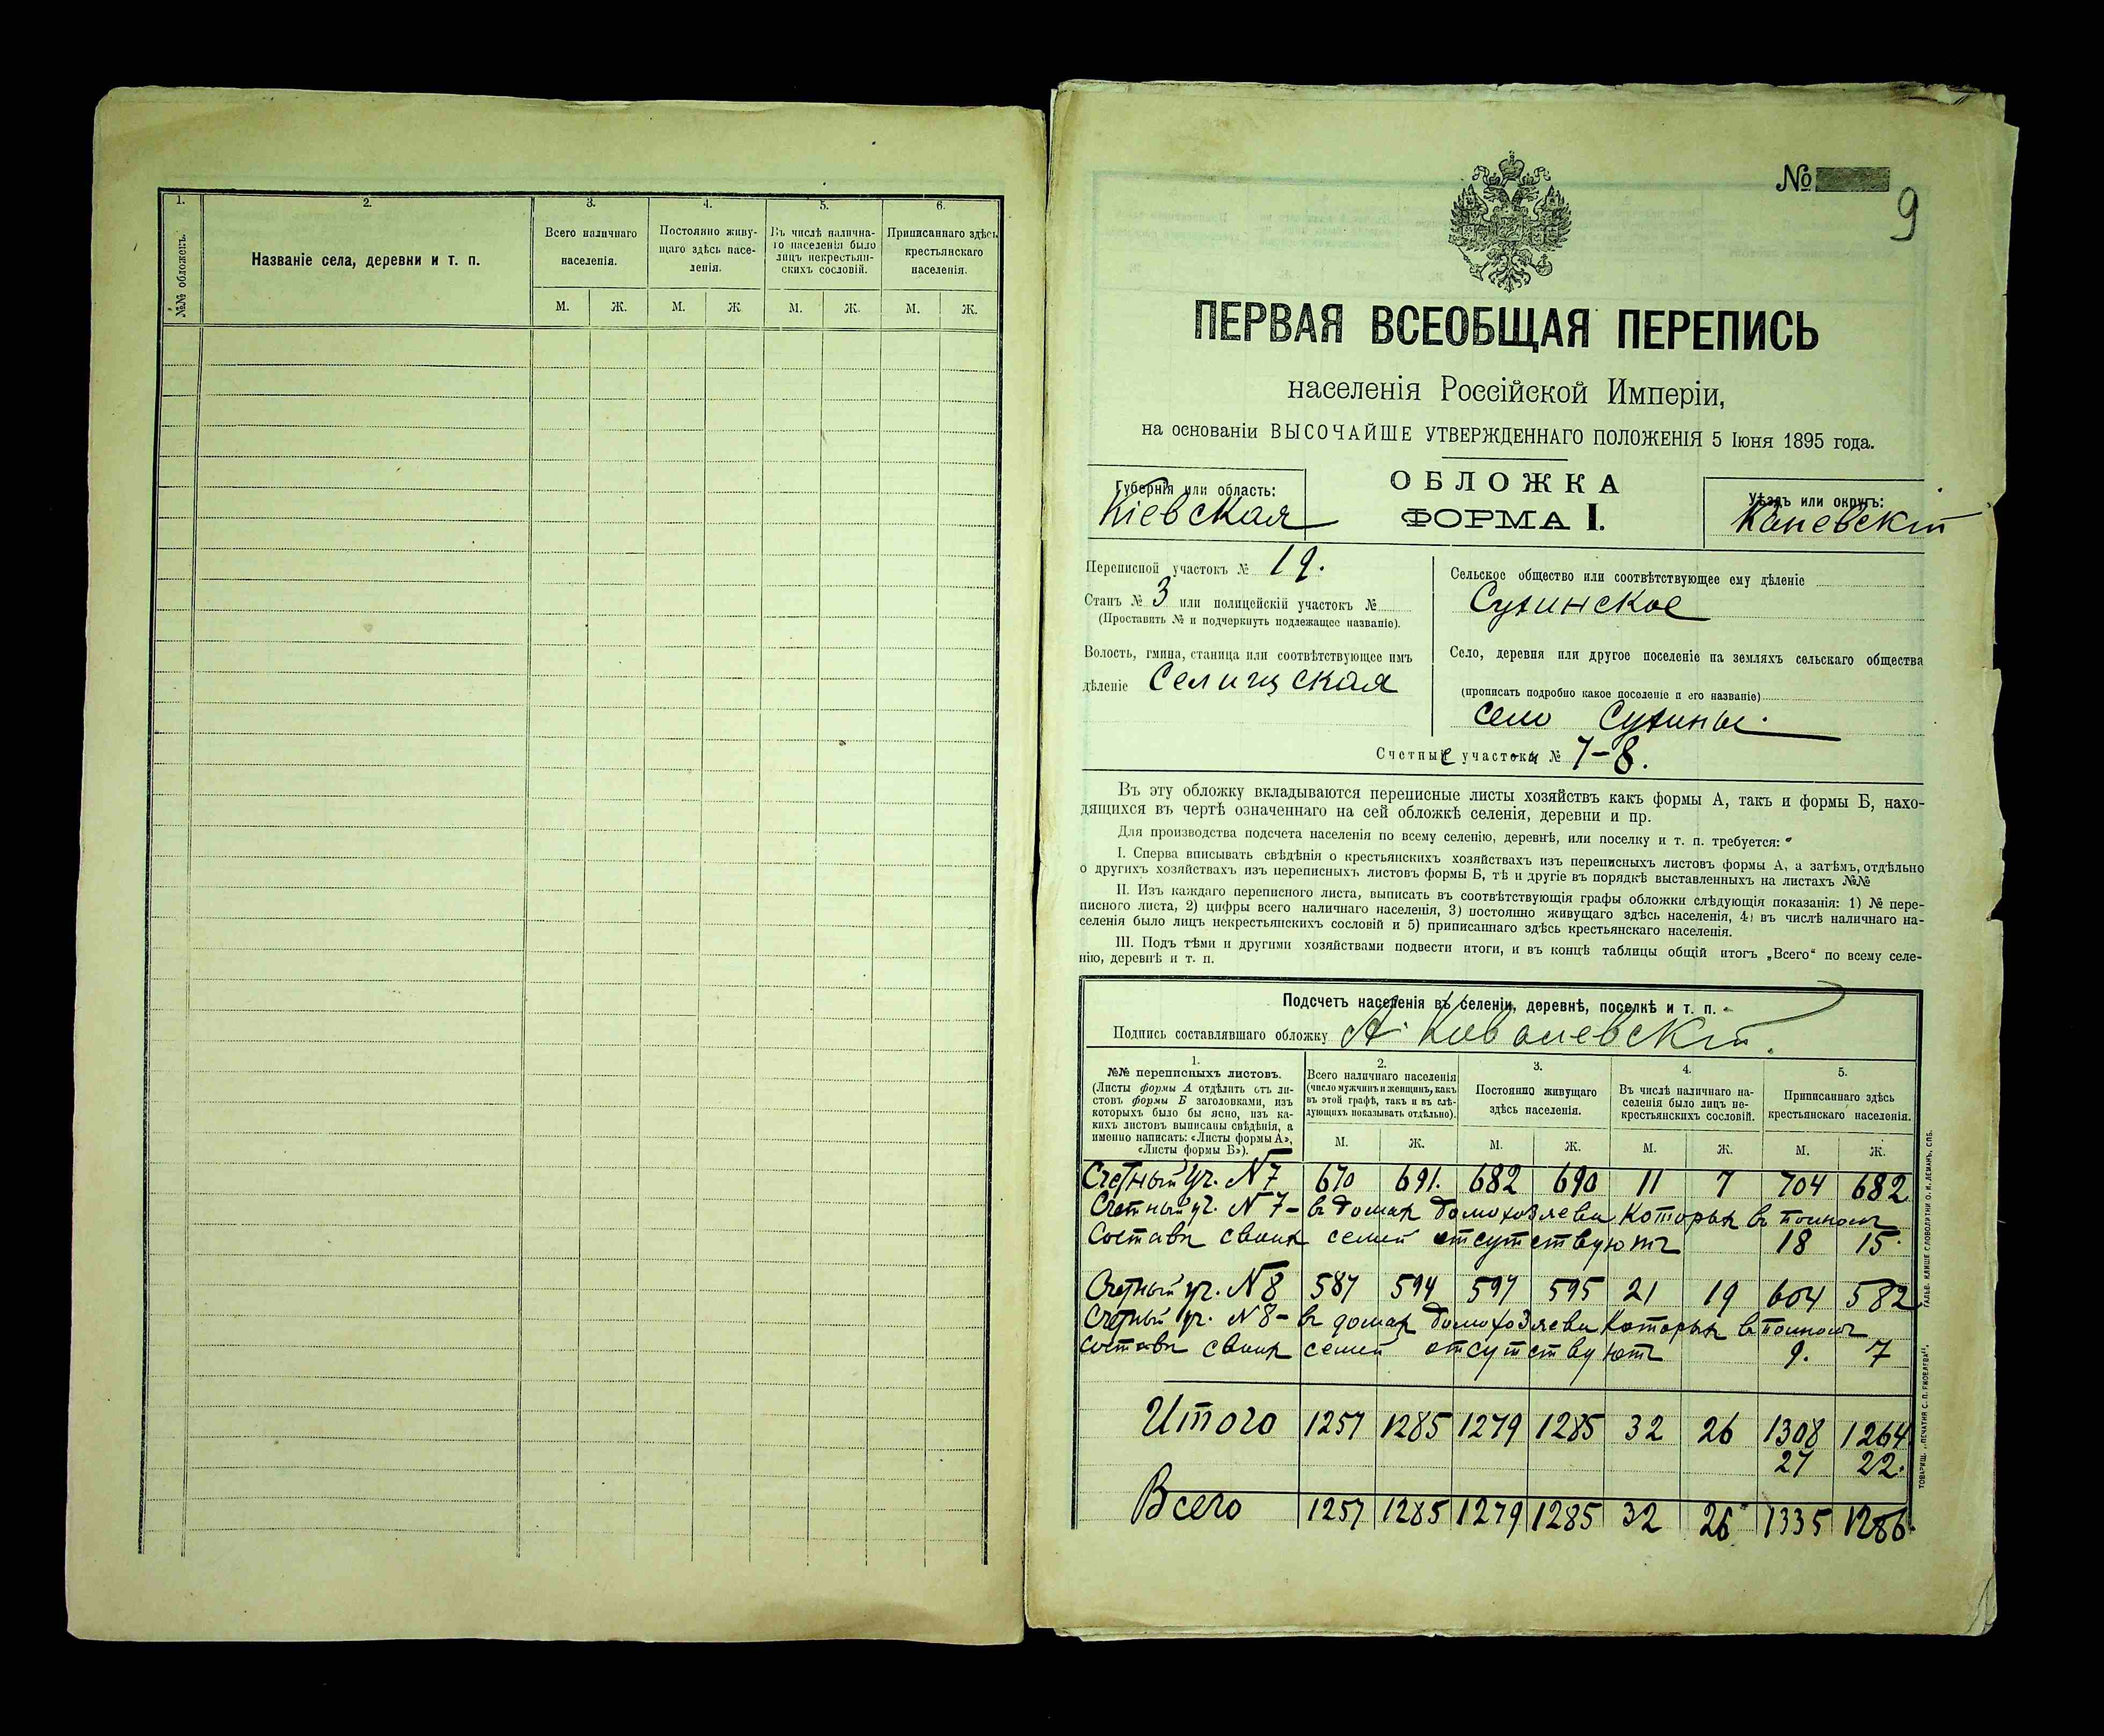 1.
2.
3.
4.
5.
6.
№№ обложекъ.
Названіе села, деревни и т. п.
Всего наличнаго
населенія.
Постоянно живу-
щаго здѣсь насе-
ленія.
Въ числѣ налична-
го населенія было
лицъ некрестьян-
скихъ сословій.
Приписаннаго здѣсь
крестьянскаго
населенія.
М. Ж. М. Ж. М. Ж. М. Ж.
№
9
ПЕРВАЯ ВСЕОБЩАЯ ПЕРЕПИСЬ
населенія Россійской Имперіи,
на основаніи ВЫСОЧАЙШЕ УТВЕРЖДЕННАГО ПОЛОЖЕНІЯ 5 Іюня 1895 года.
Губернія или область:
Кіевская
ОБЛОЖКА
ФОРМА I.
Уѣздъ или округъ:
Каневскій
Переписной участокъ № 19.
Станъ № 3 или полицейскій участокъ №
(Проставить № и подчеркнуть подлежащее названіе).
Волость, гмина, станица или соотвѣтствующее имъ
дѣленіе Селищская
Сельское общество или соотвѣтствующее ему дѣленіе
Сухинское
Село, деревня или другое поселеніе на земляхъ сельскаго общества
(прописать подробно какое поселеніе и его названіе)
село Сухины.
Счетные участки № 7–8.
Въ эту обложку вкладываются переписные листы хозяйствъ какъ формы А, такъ и формы Б, нахо-
дящихся въ чертѣ означеннаго на сей обложкѣ селенія, деревни и пр.
Для производства подсчета населенія по всему селенію, деревнѣ, или поселку и т. п. требуется:
I. Сперва вписывать свѣдѣнія о крестьянскихъ хозяйствахъ изъ переписныхъ листовъ формы А, а затѣмъ, отдѣльно
о другихъ хозяйствахъ изъ переписныхъ листовъ формы Б, тѣ и другіе въ порядкѣ выставленныхъ на листахъ №№
II. Изъ каждаго переписного листа, выписать въ соотвѣтствующія графы обложки слѣдующія показанія: 1) № пере-
писного листа, 2) цифры всего наличнаго населенія, 3) постоянно живущаго здѣсь населенія, 4) въ числѣ наличнаго на-
селенія было лицъ некрестьянскихъ сословій и 5) приписаннаго здѣсь крестьянскаго населенія.
III. Подъ тѣми и другими хозяйствами подвести итоги, и въ концѣ таблицы общій итогъ „Всего“ по всему селе-
нію, деревнѣ и т. п.
Подсчетъ населенія въ селеніи, деревнѣ, поселкѣ и т. п.
Подпись составлявшаго обложку А. Ковалевскій.
1.
№№ переписныхъ листовъ.
(Листы формы А отдѣлить отъ ли-
стовъ формы Б заголовками, изъ
которыхъ было бы ясно, изъ ка-
кихъ листовъ выписаны свѣдѣнія, а
именно написать: «Листы формы А»,
«Листы формы Б»).
2.
Всего наличнаго населенія
(число мужчинъ и женщинъ, какъ
въ этой графѣ, такъ и въ слѣ-
дующихъ показывать отдѣльно).
3.
Постоянно живущаго
здѣсь населенія.
4.
Въ числѣ наличнаго на-
селенія было лицъ не-
крестьянскихъ сословій.
5.
Приписаннаго здѣсь
крестьянскаго населенія.
М. Ж. М. Ж. М. Ж. М. Ж.
Счетный уч. № 7 670 691. 682 690 11 7 704 682
Счетный уч. № 7 – въ домах домохозяевъ которых въ полномъ
составѣ своих семей отсутствуютъ 18 15
Счетный уч. № 8 587 594 597 595 21 19 604 582
Счетный уч. № 8 – въ домах домохозяевъ которых въ полномъ
составѣ своих семей отсутствуютъ 9. 7
Итого 1257 1285 1279 1285 32 26 1308 1264
27 22.
Всего 1257 1285 1279 1285 32 26 1335 1286.
ГАЛЬВ. КЛИШЕ СЛОВОЛИТНИ О. И. ЛЕМАНЪ, СПБ.
ТОВАРИЩ. „ПЕЧАТНЯ С. П. ЯКОВЛЕВА“.